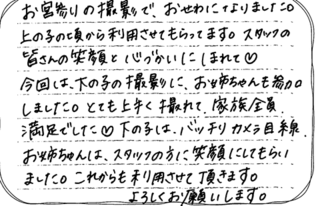 お宮参りの撮影で、おせわになりました。
上の子の頃から利用させてもらってます。スタッフの
皆さんの笑顔と心づかいにしまれて♡
今回は、下の子の撮影に、お姉ちゃんも参加
しました。とても上手く撮れて、家族全員
満足でした♡下の子は、バッチリカメラ目線。
お姉ちゃんは、スタッフの方に笑顔にしてもらい
ました。これからも利用させて頂きます。
よろしくお願いします。